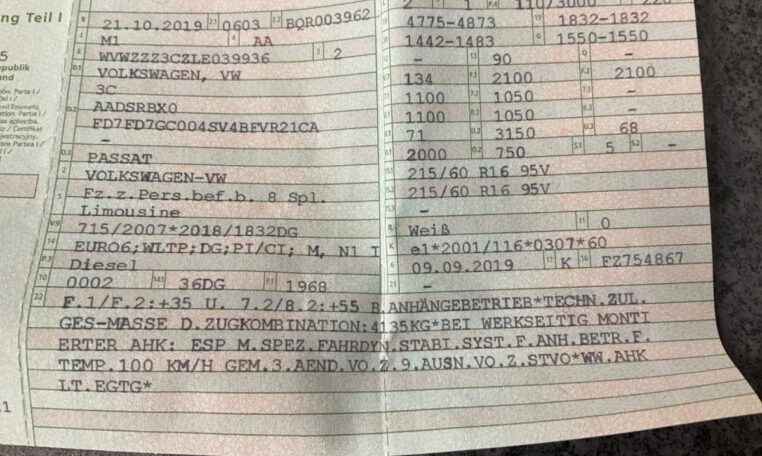 ng Teil I
5
epublik
and
1
21.10.2019 2.1 0603 2.2 BQR003962
J M1 4 AA
E WVWZZZ3CZLE039936 3 2
D.1 VOLKSWAGEN, VW
3C
D.2 AADSRBX0
FD7FD7GC004SV4BFVR21CA
–
D.3 PASSAT
2 VOLKSWAGEN-VW
5 Fz.z.Pers.bef.b. 8 Spl.
Limousine
V.9 715/2007*2018/1832DG
14 EURO6;WLTP;DG;PI/CI; M, N1 I
P.3 Diesel
10 0002 14.1 36DG P.1 1968
2 1 P.4 110/3000 220
18 4775-4873 19 1832-1832
20 1442-1483 G 1550-1550
12 – 13 90 Q –
134 F.1 2100 F.2 2100
1100 7.2 1050 7.3 –
1100 8.2 1050 8.3 –
U.1 71 U.2 3150 U.3 68
O.1 2000 O.2 750 S.1 5 S.2 –
215/60 R16 95V
215/60 R16 95V
–
R Weiß 11 0
K e1*2001/116*0307*60
6 09.09.2019 17 K 16 FZ754867
21 –
22 F.1/F.2:+35 U. 7.2/8.2:+55 B.ANHÄNGEBETRIEB*TECHN.ZUL.
GES-MASSE D.ZUGKOMBINATION:4135KG*BEI WERKSEITIG MONTI
ERTER AHK: ESP M.SPEZ.FAHRDYN.STABI.SYST.F.ANH.BETR.F.
TEMP.100 KM/H GEM.3.AEND.VO.Z.9.AUSN.VO.Z.STVO*WW.AHK
LT.EGTG*